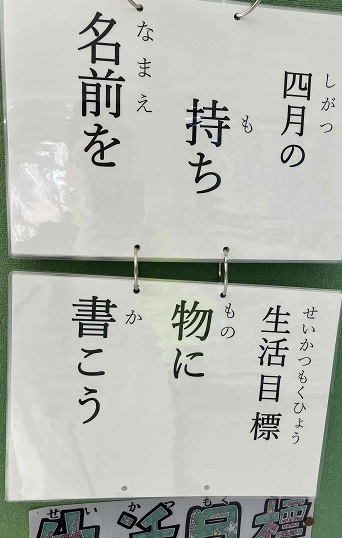 しがつ せいかつもくひょう
四月の生活目標
も もの
持ち物に
なまえ か
名前を書こう
せいかつもく
生活目標